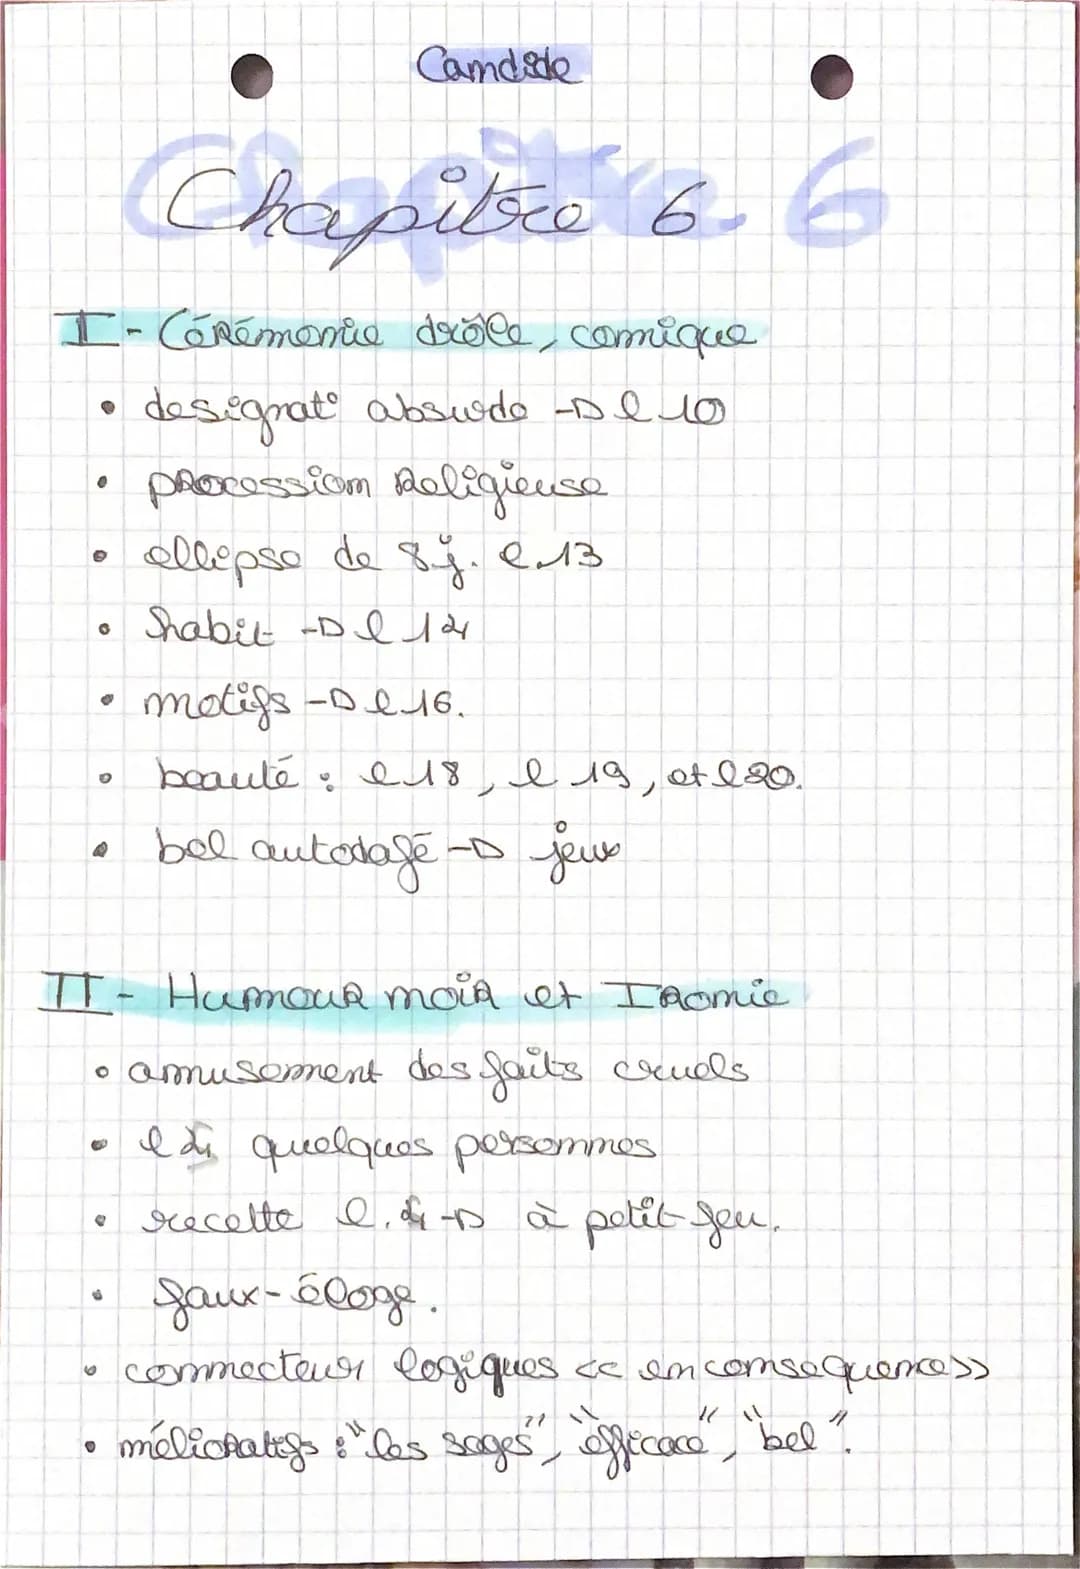 Candide
Chapitre 6
I - Cérémonie drôle, comique
• designat° absurde -> l 10
• procession Religieuse
• ellipse de 8 j. l.13
• habit -> l 14
• motifs -> l 16.
• beauté : l 18, l 19, et l 20.
• bel autodafé -> jeux
II - Humour noir et Ironie
• amusement des faits cruels
• l 4 quelques personnes
• recette l. 4 -> à petit feu.
• faux-éloge.
• connecteur logiques << en consequence>>
• mélioratifs : "les sages", "efficace", "bel".